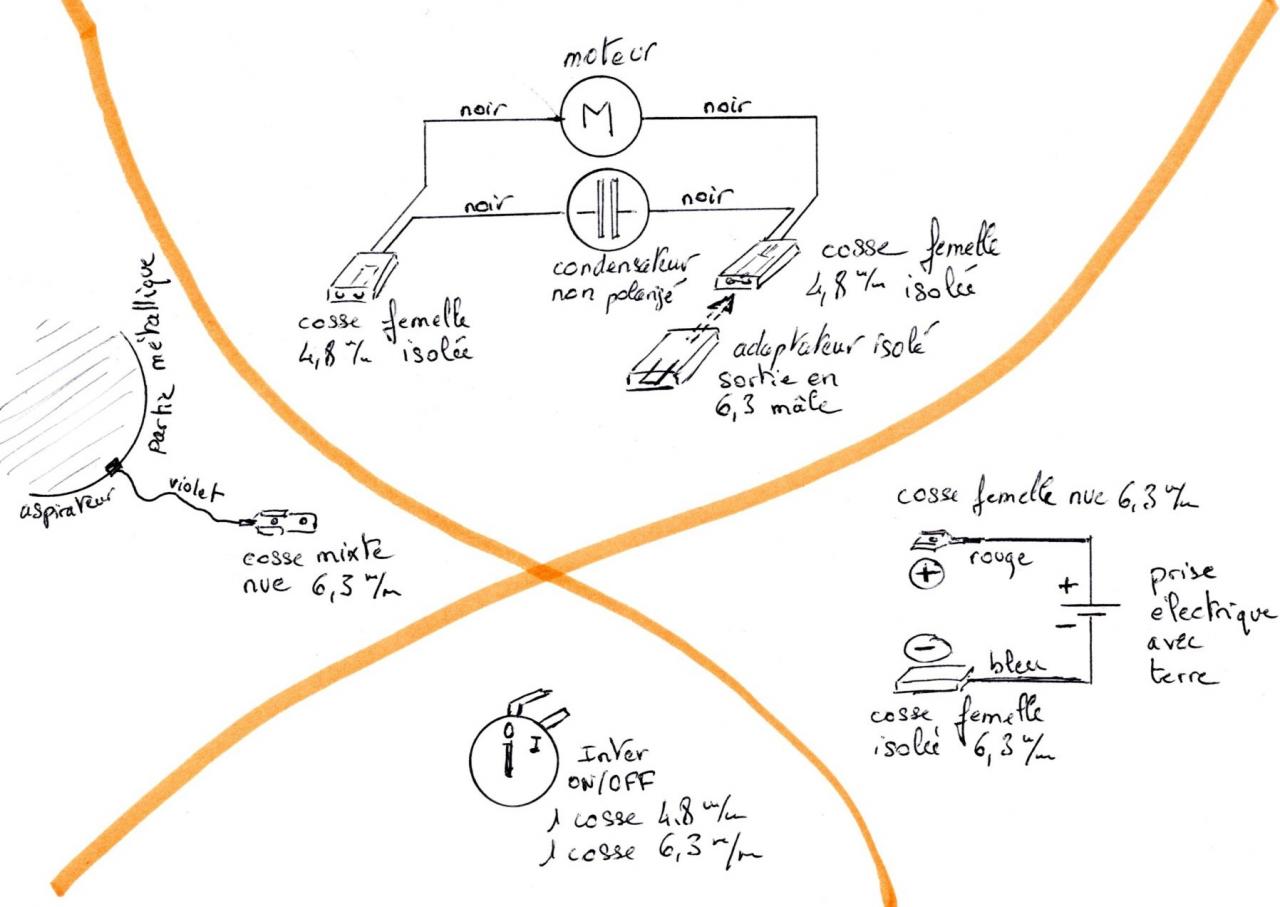 moteur
noir
noir
M
noir
noir
condensateur
non polarisé
cosse femelle
4,8 m/m
isolée
cosse femelle
4,8 m/m isolée
adaptateur isolé
sortie en
6,3 mâle
partie métallique
aspirateur
violet
cosse mixte
nue 6,3 m/m
cosse femelle nue 6,3 m/m
rouge
+
+
−
−
bleu
prise
électrique
avec
terre
cosse femelle
isolée 6,3 m/m
O
I
Inter
ON/OFF
1 cosse 4.8 m/m
1 cosse 6,3 m/m